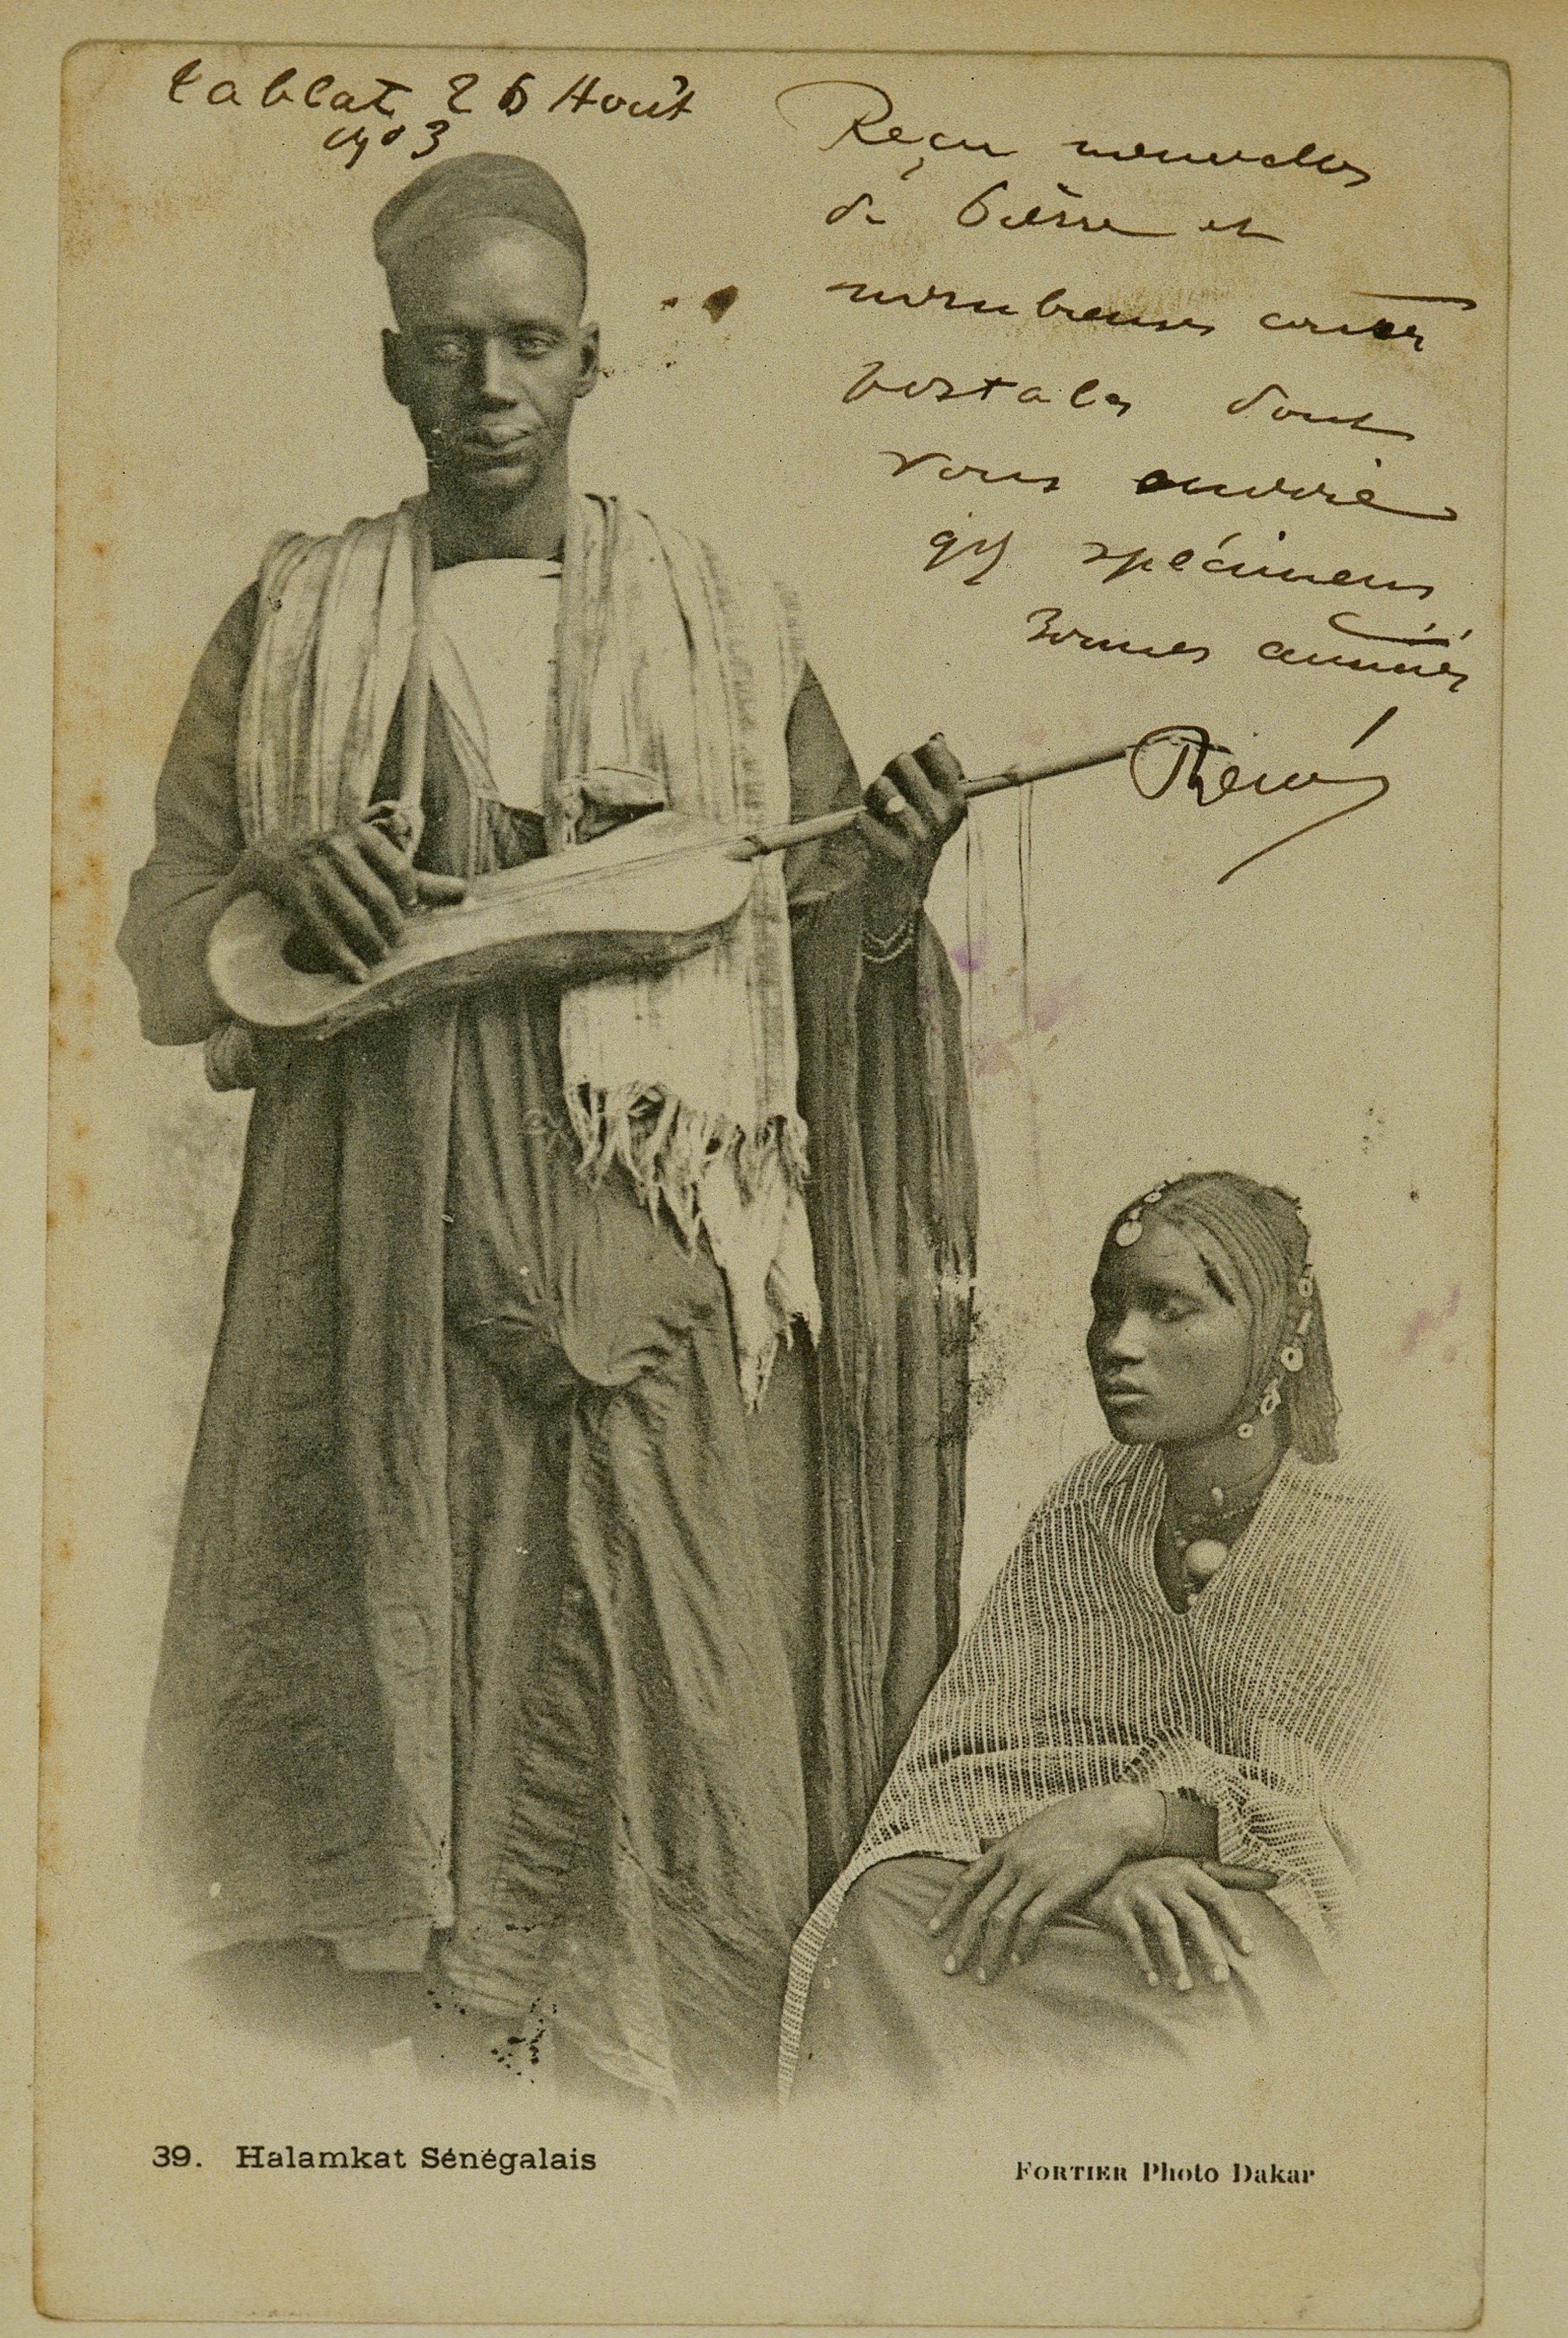 Tablat 26 Août
1903
Reçu nouvelles
de Pierre et
nombreuses cartes
postales dont
vous envoie
qq spécimens
Bonnes amitiés
René
39. Halamkat Sénégalais
FORTIER Photo Dakar